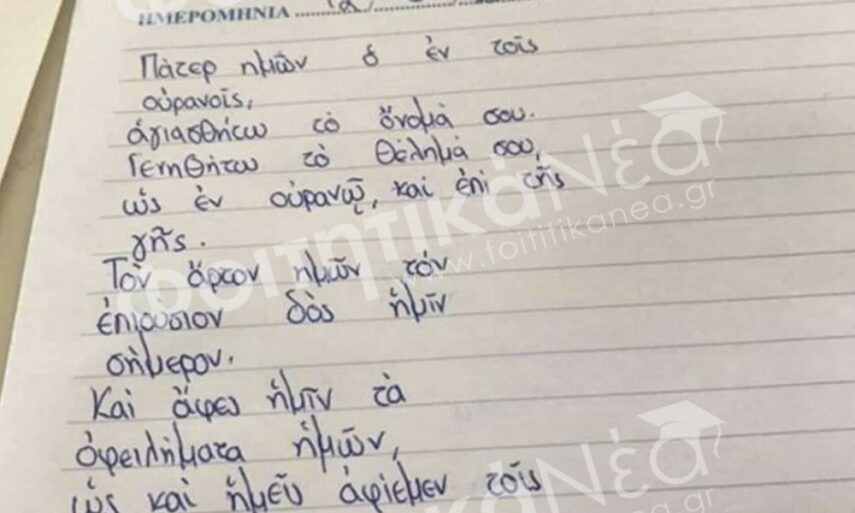 ΗΜΕΡΟΜΗΝΙΑ
Πάτερ ημῶν ὁ ἐν τοῖς
οὐρανοῖς,
ἁγιασθήτω τὸ ὄνομά σου.
Γενηθήτω τὸ θέλημά σου,
ὡς ἐν οὐρανῷ, καὶ ἐπὶ τῆς
γῆς.
Τὸν ἄρτον ημῶν τὸν
ἐπιούσιον δὸς ἡμῖν
σήμερον.
Καὶ ἄφες ἡμῖν τὰ
ὀφειλήματα ἡμῶν,
ὡς καὶ ἡμεῖς ἀφίεμεν τοῖς
φοιτητικάΝέα
www.foititikanea.gr
φοιτητικάΝέα
www.foititikanea.gr